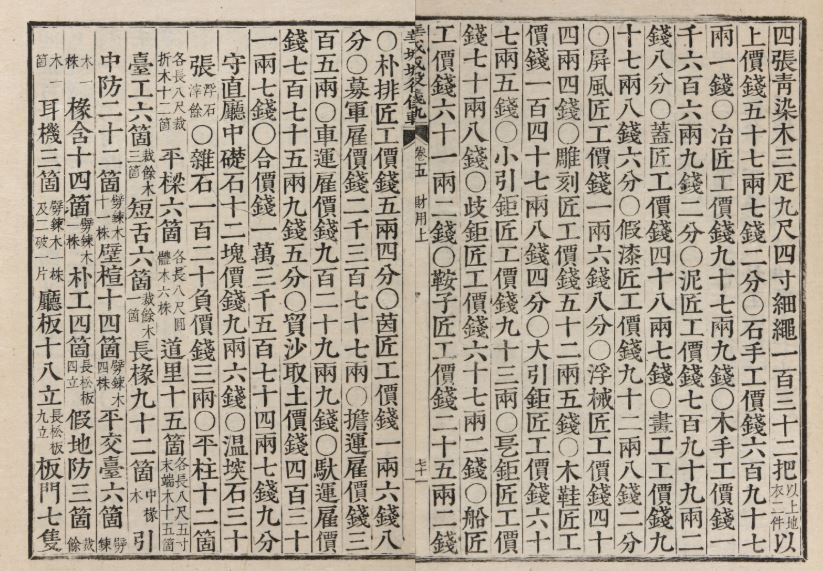 四張靑染木三疋九尺四寸細繩一百三十二把以上地衣二件以
上價錢五十七兩七錢二分〇石手工價錢六百九十七
兩一錢〇冶匠工價錢九十七兩九錢〇木手工價錢一
千六百六兩九錢二分〇泥匠工價錢七百九十九兩二
錢八分〇蓋匠工價錢四十八兩七錢〇畫工工價錢九
十七兩八錢六分〇假漆匠工價錢九十二兩八錢二分
〇屛風匠工價錢一兩六錢八分〇浮械匠工價錢四十
四兩四錢〇雕刻匠工價錢五十二兩五錢〇木鞋匠工
價錢一百四十七兩八錢四分〇大引鉅匠工價錢六十
七兩五錢〇小引鉅匠工價錢九十三兩〇鉅匠工價
錢七十兩八錢〇歧鉅匠工價錢六十七兩二錢〇船匠
工價錢六十一兩二錢〇鞍子匠工價錢二十五兩二錢
華城城役儀軌 卷五 財用上
〇朴排匠工價錢五兩四分〇茵匠工價錢一兩六錢八
分〇募軍雇價錢二千三百七十七兩〇擔運雇價錢三
百五兩〇車運雇價錢九百二十九兩九錢〇馱運雇價
錢七百七十五兩九錢五分〇貿沙取土價錢四百三十
一兩七錢〇合價錢一萬三千五百七十四兩七錢九分
守直廳中礎石十二塊價錢九兩六錢〇温堗石三十
張浮石滓餘〇雜石一百二十負價錢三兩〇平柱十二箇
各長八尺裁折木十二箇平樑六箇各長八尺圓體木六株道里十五箇各長八尺五寸末端木十五箇
臺工六箇裁餘木三箇短舌六箇裁餘木一箇長椽九十二箇中椽木引
中防二十二箇劈鍊木十一株壁楦十四箇劈鍊木四株平交臺六箇劈鍊
木株椽含十四箇劈鍊木一株朴工四箇長松板四立假地防三箇裁餘
木一箇耳機三箇劈鍊木一株及二破一片廳板十八立長松板九立板門七隻